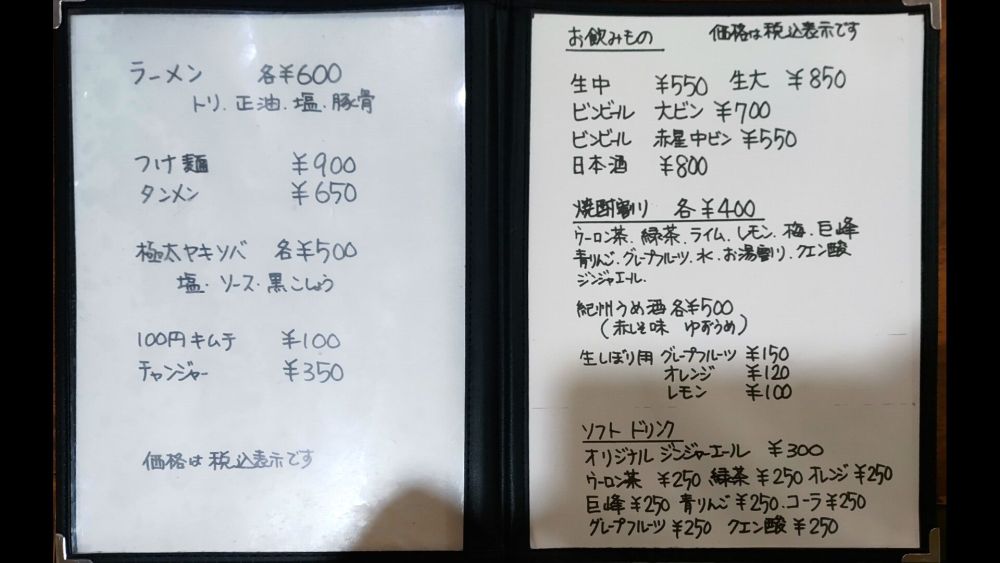 ラーメン 各¥600
トリ．正油．塩．豚骨
つけ麺 ¥900
タンメン ¥650
極太ヤキソバ 各¥500
塩・ソース・黒こしょう
100円キムチ ¥100
チャンジャー ¥350
価格は税込表示です
お飲みもの 価格は税込表示です
生中 ¥550 生大 ¥850
ビンビール 大ビン ¥700
ビンビール 赤星中ビン ¥550
日本酒 ¥800
焼酎割り 各¥400
ウーロン茶．緑茶．ライム．レモン．梅．巨峰
青りんご．グレープフルーツ．水．お湯割り．クエン酸
ジンジャエール．
紀州うめ酒各¥500
(赤しそ味 ゆずうめ)
生しぼり用 グレープフルーツ ¥150
オレンジ ¥120
レモン ¥100
ソフトドリンク
オリジナル ジンジャーエール ¥300
ウーロン茶 ¥250 緑茶 ¥250 オレンジ ¥250
巨峰¥250 青りんご¥250．コーラ¥250
グレープフルーツ¥250 クエン酸¥250